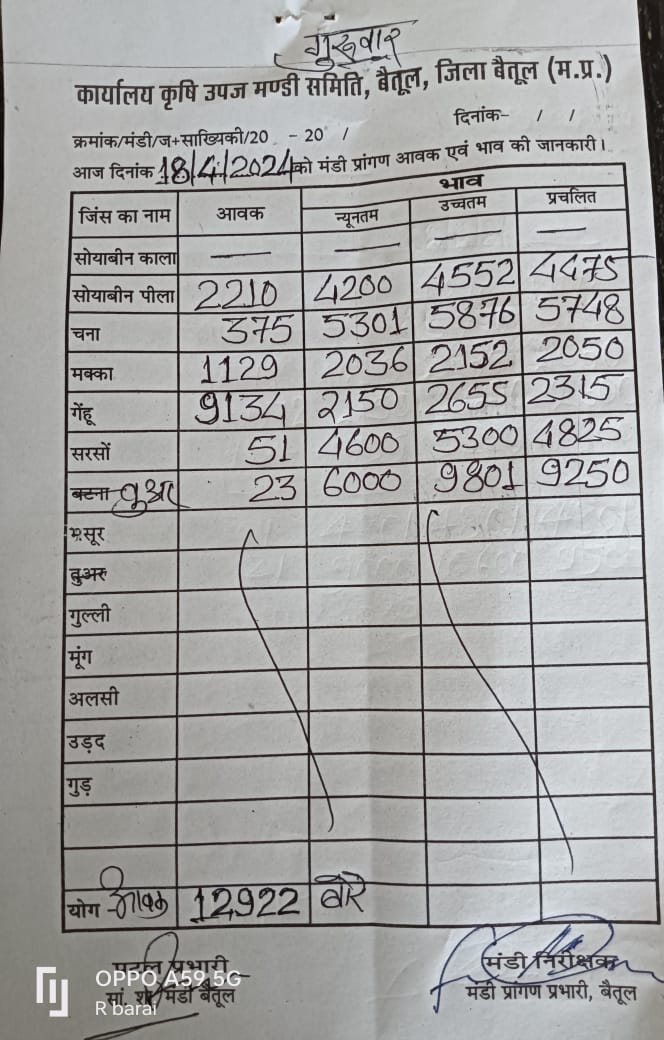 गुरुवार
कार्यालय कृषि उपज मण्डी समिति, बैतूल, जिला बैतूल (म.प्र.)
दिनांक- / /
क्रमांक/मंडी/ज+साख्यिकी/20 - 20 /
आज दिनांक 18/4/2024 को मंडी प्रांगण आवक एवं भाव की जानकारी।
भाव
जिंस का नाम आवक न्यूनतम उच्चतम प्रचलित
सोयाबीन काला — — — —
सोयाबीन पीला 2210 4200 4552 4475
चना 375 5301 5876 5748
मक्का 1129 2036 2152 2050
गेंहू 9134 2150 2655 2315
सरसों 51 4600 5300 4825
बटना तुअर 23 6000 9801 9250
मसूर
तुअर
गुल्ली
मूंग
अलसी
उड़द
गुड़
योग आवक 12922 बोरे
प्रभारी मंडी निरीक्षक
सां. मंडी बैतूल मंडी प्रांगण प्रभारी, बैतूल
OPPO A59 5G
R barai